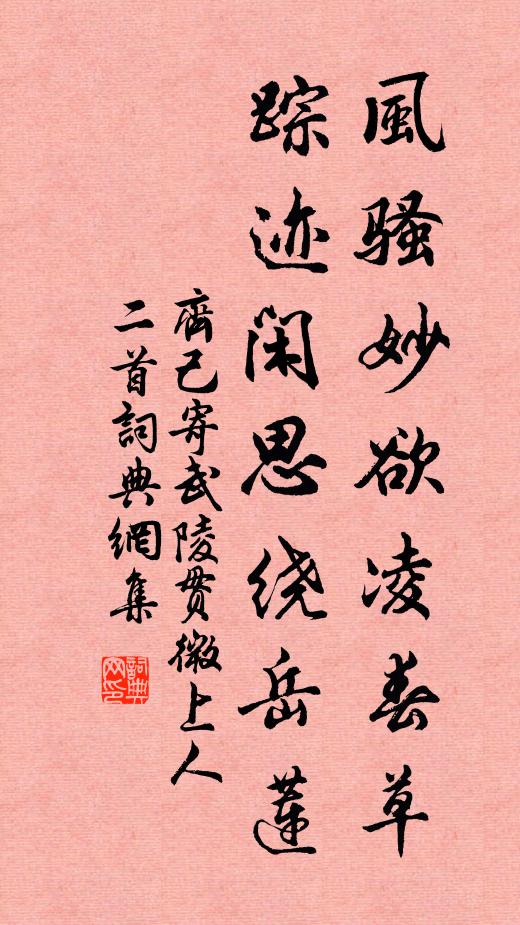 風騷妙欲凌春草
踪迹闲思绕岳蓮
齊己寄武陵貫微上人
二首詞典網集
詞典网印